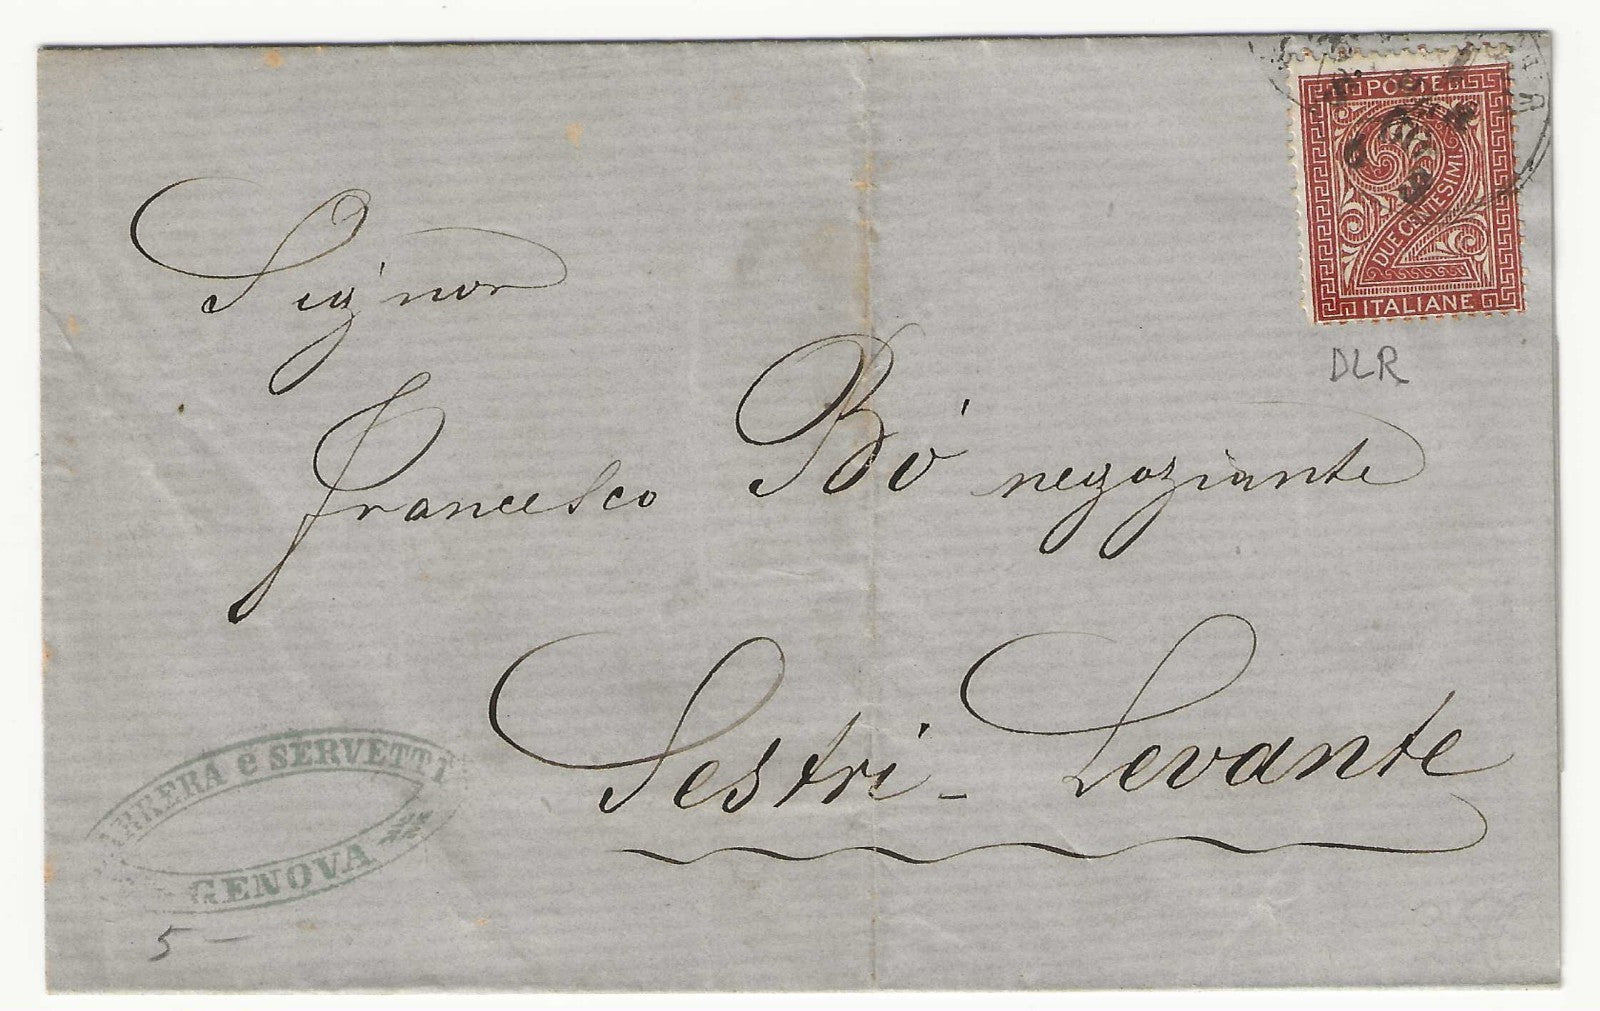 POSTE
DUE CENTESIMI
ITALIANE
DLR
Signor
Francesco Bó negoziante
Sestri-Levante
ARRERA e SERVETTI
GENOVA
5-